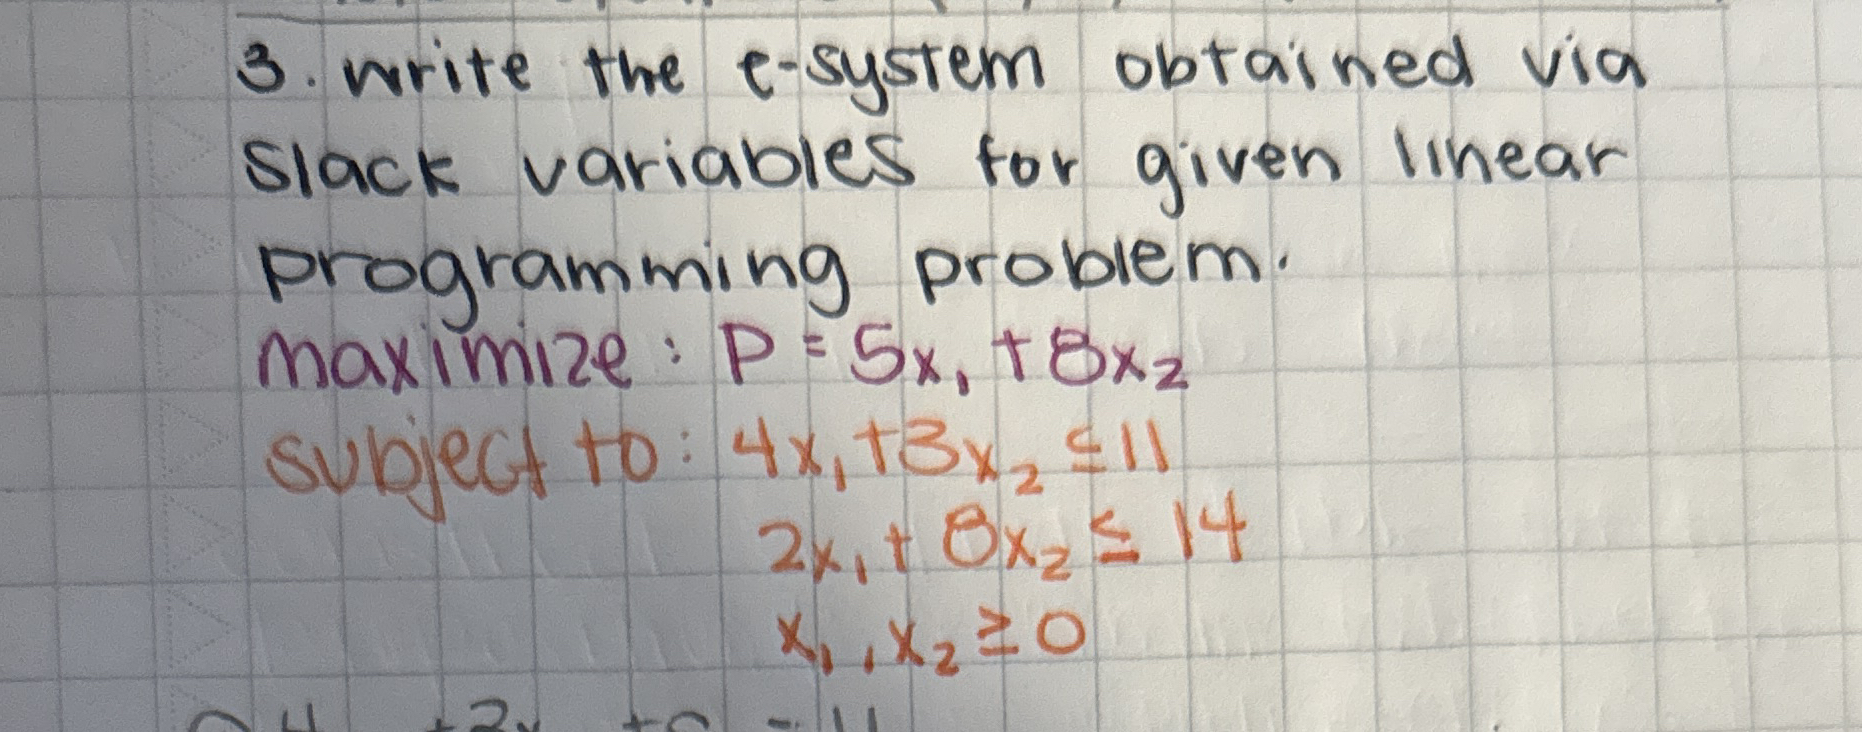 3. write the e-system obtained via
slack variables for given linear
programming problem.
maximize: P = 5x₁ + 8x₂
subject to: 4x₁ + 3x₂ ≤ 11
2x₁ + 8x₂ ≤ 14
x₁, x₂ ≥ 0